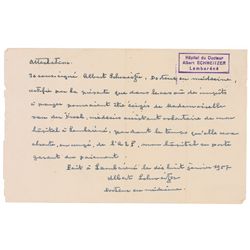 Attestation.
Hôpital du Docteur
Albert SCHWEITZER
Lambaréné
Je soussigné Albert Schweitzer, Docteur en médecine,
certifie par la présente que dans le cas où des impôts
à payer pourraient être exigés de Mademoiselle
van der Kreek, médecin assistant volontaire de mon
hôpital à Lambaréné, pendant le temps qu'elle sera
absente, en congé, de l'A.E.F., mon hôpital se porte
garant du paiement.
Fait à Lambaréné le dix huit janvier 1957
Albert Schweitzer
Docteur en médecine.